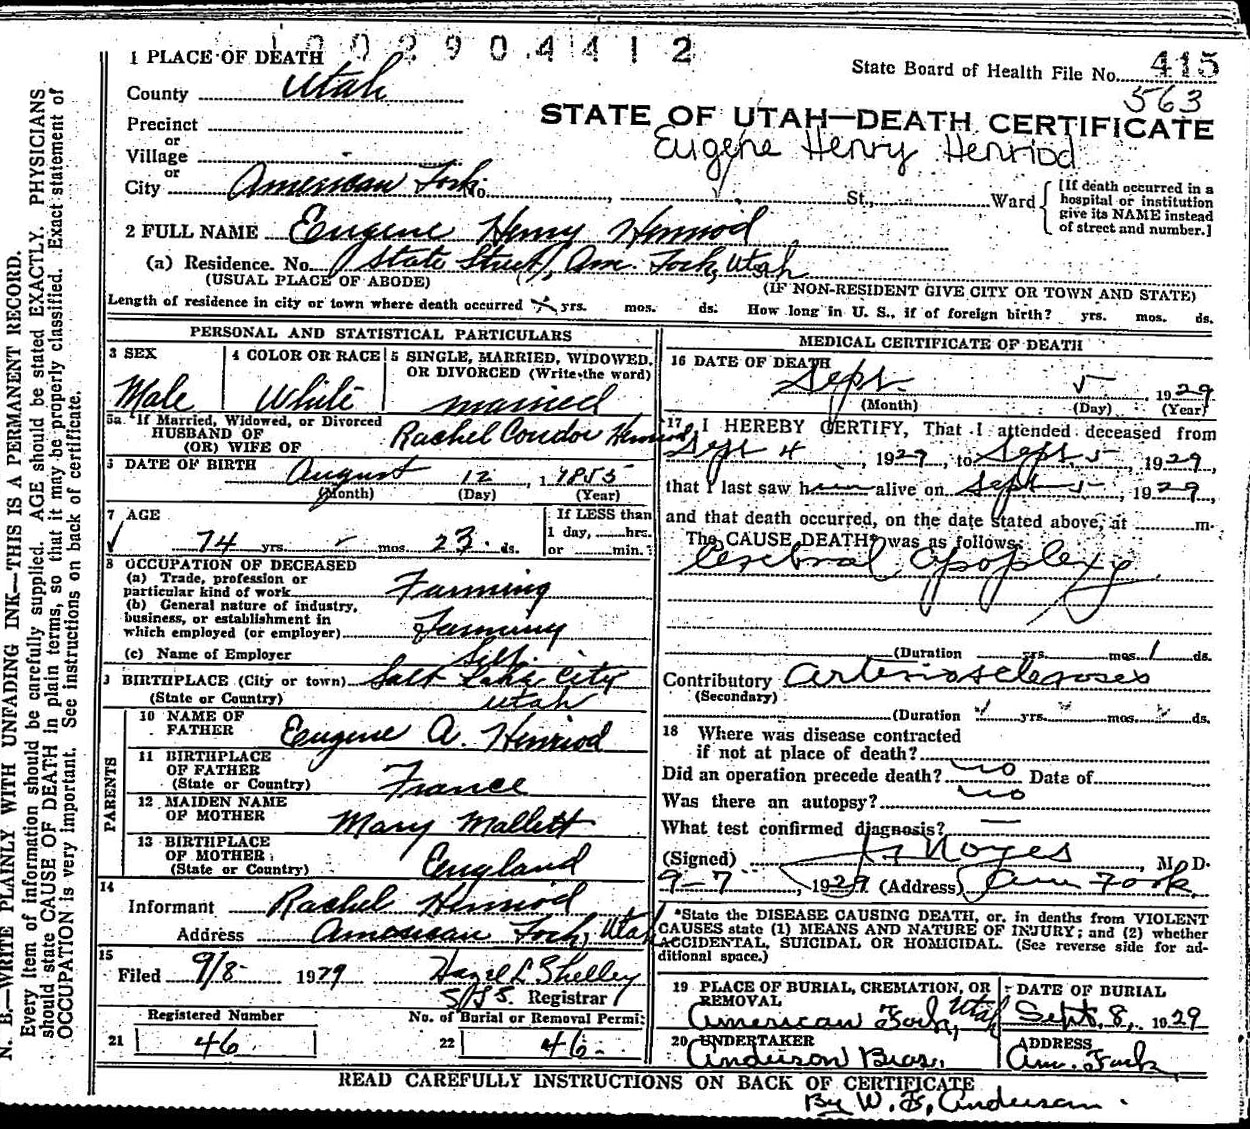 1 0 0 2 9 0 4 4 1 2
1 PLACE OF DEATH
County Utah
State Board of Health File No. 415
563
STATE OF UTAH—DEATH CERTIFICATE
Eugene Henry Henriod
Precinct
or
Village -
or
City American Fork No. St., Ward
[If death occurred in a
hospital or institution
give its NAME instead
of street and number.]
2 FULL NAME Eugene Henry Henriod
(a) Residence. No. (State Street), Am. Fork, Utah
(USUAL PLACE OF ABODE) (IF NON-RESIDENT GIVE CITY OR TOWN AND STATE)
Length of residence in city or town where death occurred yrs. mos. ds. How long in U. S., if of foreign birth? yrs. mos. ds.
PERSONAL AND STATISTICAL PARTICULARS
3 SEX
Male
4 COLOR OR RACE
White
5 SINGLE, MARRIED, WIDOWED,
OR DIVORCED (Write the word)
married
5a If Married, Widowed, or Divorced
HUSBAND OF
(OR) WIFE OF Rachel Condor Henriod
6 DATE OF BIRTH August 12, 1855
(Month) (Day) (Year)
7 AGE
74 yrs. - mos. 23 ds.
If LESS than
1 day, hrs.
or min.
8 OCCUPATION OF DECEASED
(a) Trade, profession or
particular kind of work Farming
(b) General nature of industry,
business, or establishment in
which employed (or employer) Farming
(c) Name of Employer Self
9 BIRTHPLACE (City or town) Salt Lake City
(State or Country) Utah
PARENTS
10 NAME OF
FATHER Eugene A. Henriod
11 BIRTHPLACE
OF FATHER
(State or Country) France
12 MAIDEN NAME
OF MOTHER Mary Mallett
13 BIRTHPLACE
OF MOTHER
(State or Country) England
14
Informant Rachel Henriod
Address American Fork, Utah
15
Filed 9/8 1929 Hazel L Shelley
Registrar
Registered Number
21 46
No. of Burial or Removal Permit
22 46
MEDICAL CERTIFICATE OF DEATH
16 DATE OF DEATH
Sept. 5, 1929
(Month) (Day) (Year)
17 I HEREBY CERTIFY, That I attended deceased from
Sept 4, 1929, to Sept 5, 1929,
that I last saw him alive on Sept 5, 1929,
and that death occurred, on the date stated above, at m.
The CAUSE DEATH* was as follows:
Cerebral apoplexy
(Duration yrs. mos. 1 ds.
Contributory Arteriosclerosis
(Secondary)
(Duration yrs. mos. ds.
18 Where was disease contracted
if not at place of death?
Did an operation precede death? no Date of
Was there an autopsy? no
What test confirmed diagnosis? —
(Signed) Noyes, M. D.
9-7, 1929 (Address) Am Fork
*State the DISEASE CAUSING DEATH, or, in deaths from VIOLENT
CAUSES state (1) MEANS AND NATURE OF INJURY; and (2) whether
ACCIDENTAL, SUICIDAL OR HOMICIDAL. (See reverse side for ad-
ditional space.)
19 PLACE OF BURIAL, CREMATION, OR
REMOVAL
American Fork, Utah
DATE OF BURIAL
Sept. 8, 1929
20 UNDERTAKER
Anderson Bros.
ADDRESS
Am. Fork
READ CAREFULLY INSTRUCTIONS ON BACK OF CERTIFICATE
By W. F. Anderson.
N. B.—WRITE PLAINLY WITH UNFADING INK—THIS IS A PERMANENT RECORD.
Every item of information should be carefully supplied. AGE should be stated EXACTLY. PHYSICIANS
should state CAUSE OF DEATH in plain terms, so that it may be properly classified. Exact statement of
OCCUPATION is very important. See instructions on back of certificate.